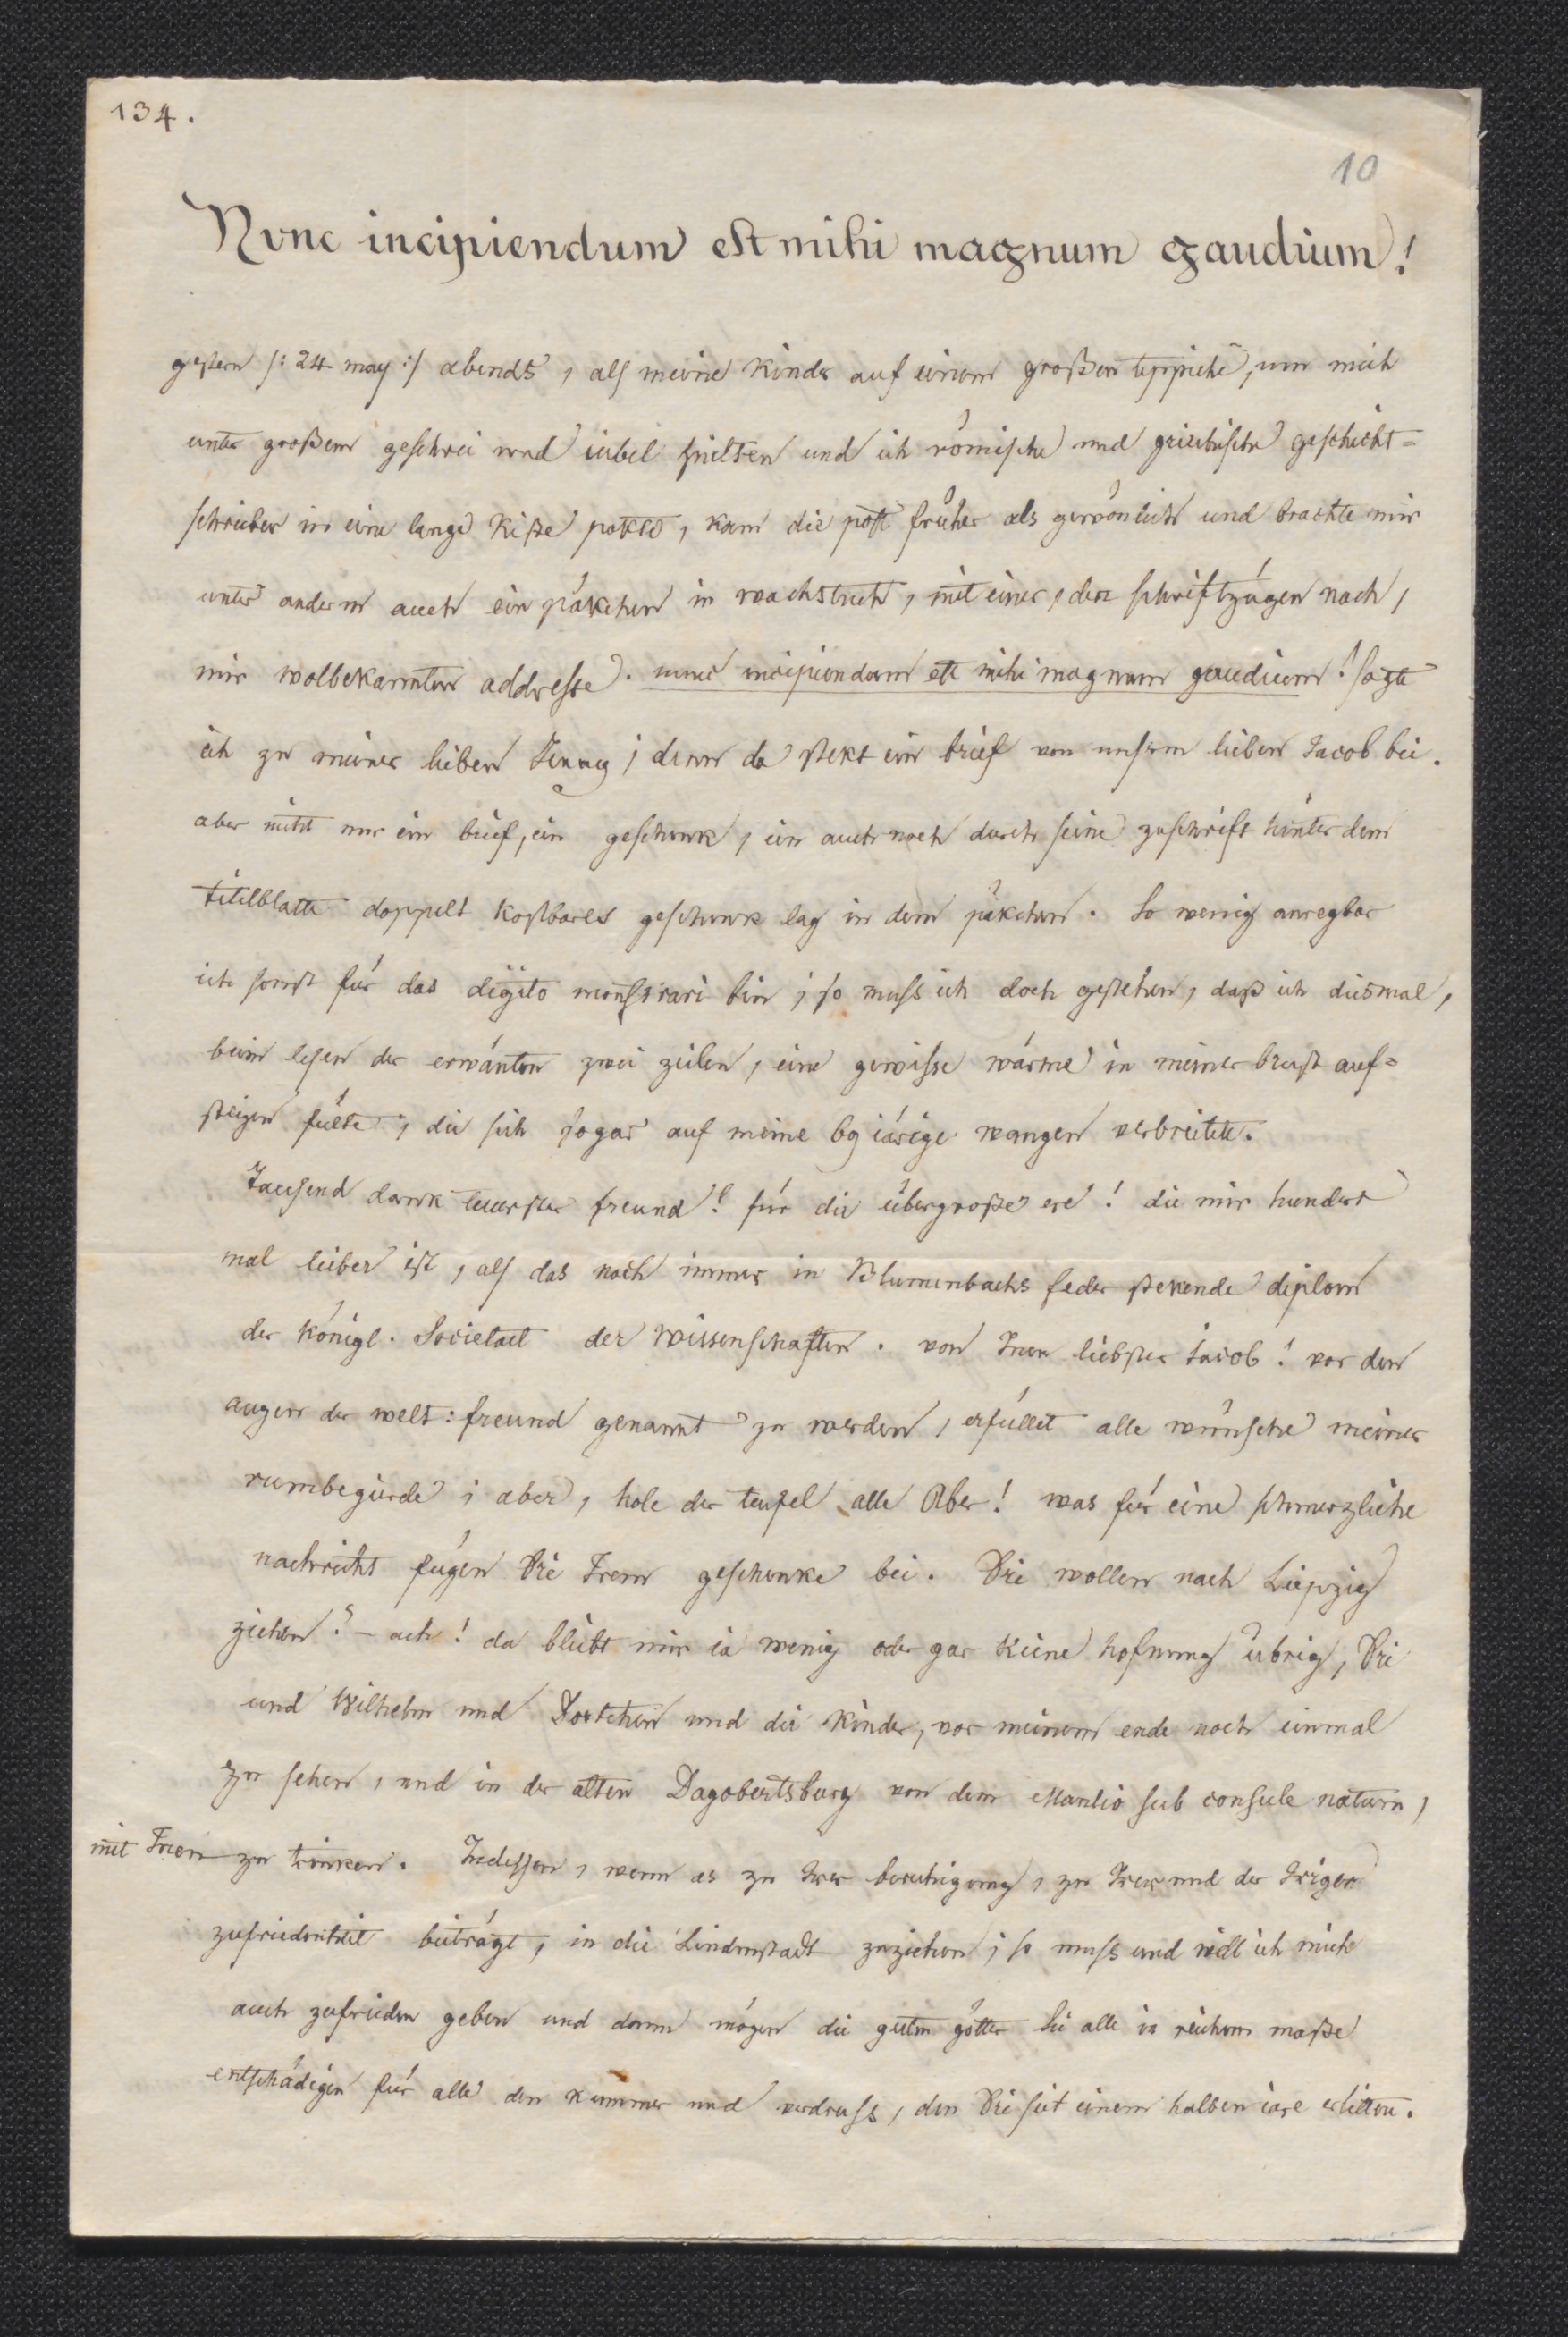 134.
10
Nvnc incipiendum est mihi magnum gaudium!
gestern /: 24 may :/ abends, als meine kinder auf einem großen teppiche, um mich
unter großem geschrei und iubel spielten und ich römische und griechische geschicht=
schreiber in eine lange kiste pakte, kam die post früher als gewönlich und brachte mir
unter anderm auch ein päkchen in wachstuch, mit einer, den schriftzügen nach,
mir wolbekannten addresse. nunc incipiendum est mihi magnum gaudium! sagte
ich zu meiner lieben Jenny; denn da stekt ein brief von unserm lieben Jacob bei.
aber nicht nur ein brief, ein geschenk, ein auch noch durch seine zuschrift hinter dem
titelblatte doppelt kostbares geschenk lag in dem päkchen. So wenig anregbar
ich sonst für das digito monstrari bin; so muss ich doch gestehen, daß ich diesmal,
beim lesen der erwänten zwei zeilen, eine gewisse wärme in meiner brust auf=
steigen fülte, die sich sogar auf meine 69 iärige wangen verbreitete.
Tausend dank teuerster freund! für die übergroße ere! die mir hundert
mal lieber ist, als das noch immer in Blumenbachs feder stekende diplom
der königl. Societaet der wissenschaften. von Inen liebster iacob! vor den
augen der welt: freund genannt zu werden, erfüllet alle wünsche meiner
rumbegierde; aber, hole der teufel alle Aber! was für eine schmerzliche
nachricht fügen Sie Irem geschenke bei. Sie wollen nach Leipzig
ziehen? – ach! da bleibt mir ia wenig oder gar keine hofnung übrig, Sie
und Wilhelm und Dortchen und die kinder, vor meinem ende noch einmal
zu sehen, und in der alten Dagobertsburg von dem Manlio sub consule natum,
mit Inen zu trinken. Indessen, wenn es zu Irer beruhigung, zu Irer und der Irigen
zufriedenheit beiträgt, in die Lindenstadt zuziehen; so muss und will ich mich
auch zufrieden geben und dann mögen die guten götter Sie alle in reichem maße
entschädigen für alle den kummer und verdruss, den Sie seit einem halben iare erlitten.